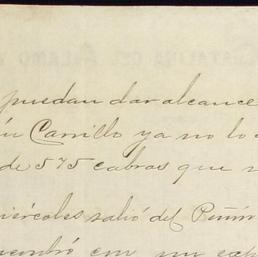 puedan dar alcance
Carrillo ya no lo
de 575 cabras que
miércoles salió del Peñón
en un